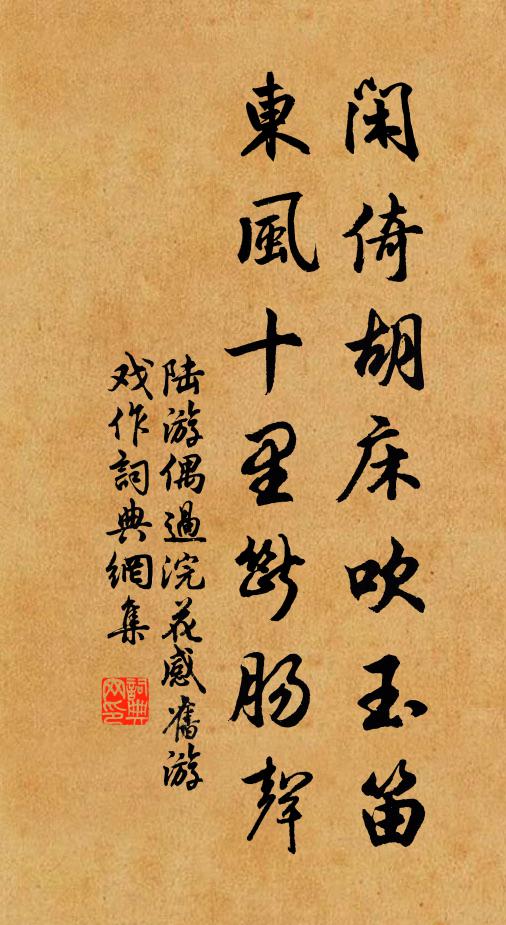 閑倚胡床吹玉笛
東風十里断腸聲
陆游偶過浣花感舊游
戏作詞典網集
詞典
網印